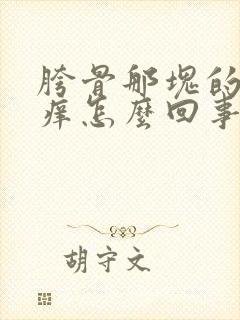 胯骨那块的
痒怎麼回事
胡守文